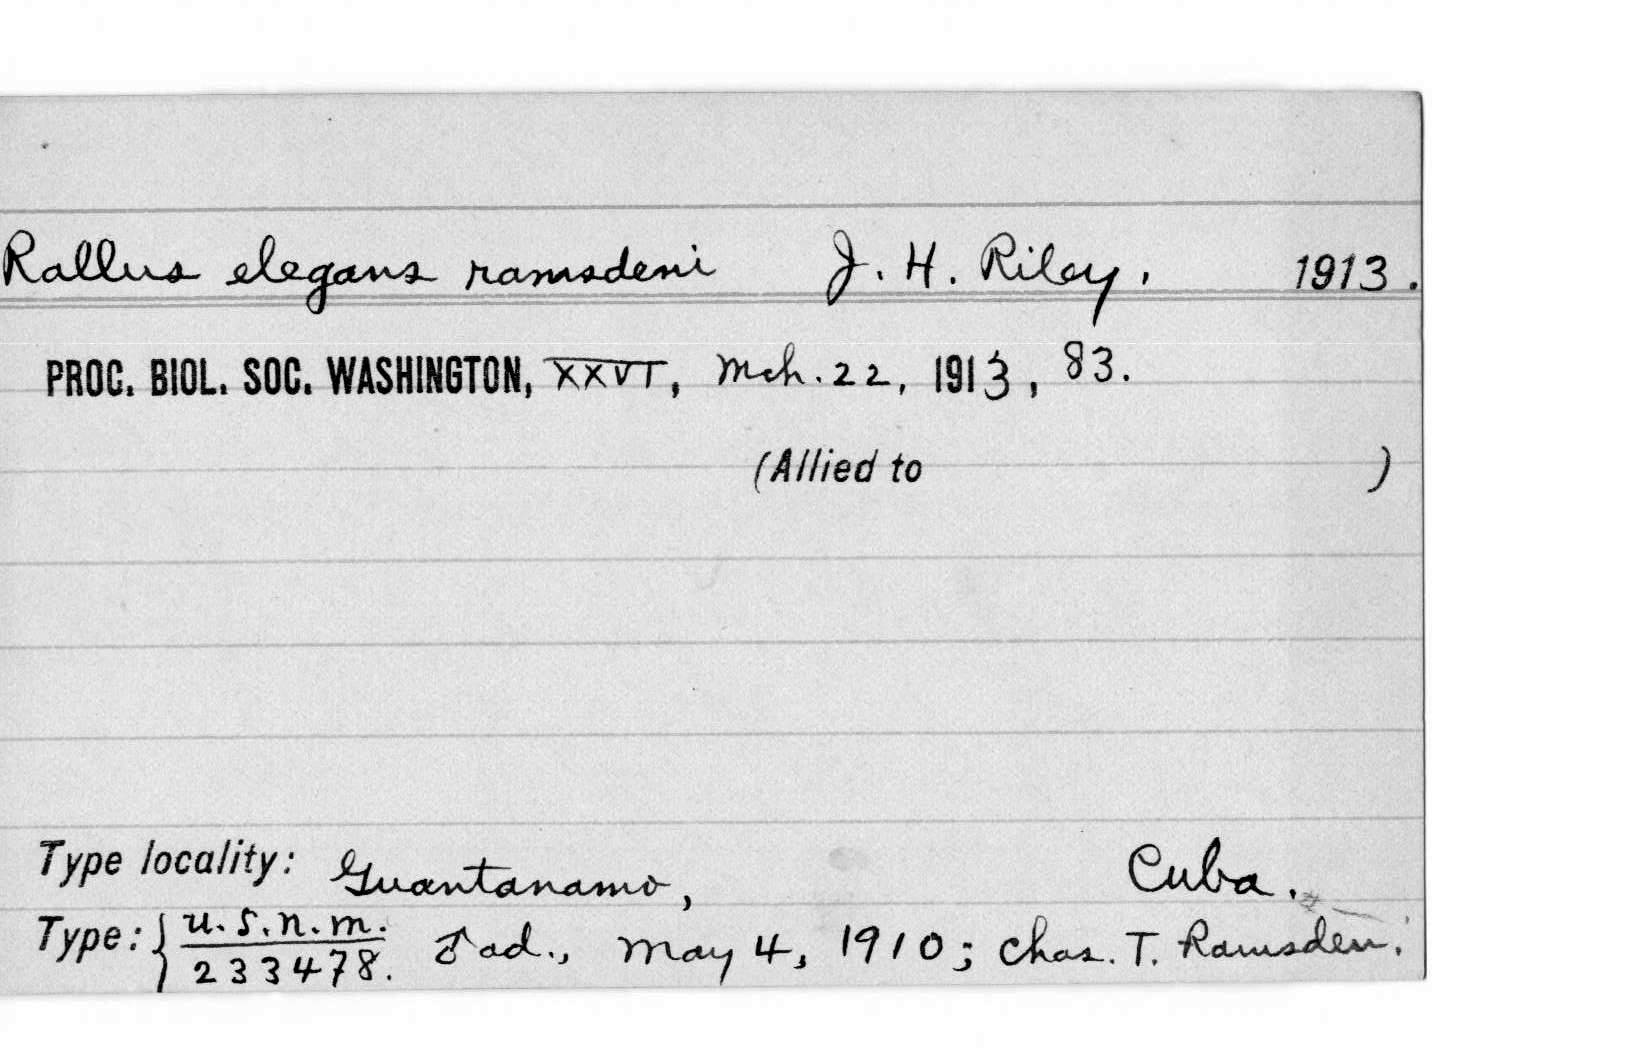 Rallus elegans ramsdeni J. H. Riley, 1913.
PROC. BIOL. SOC. WASHINGTON, XXVI, Mch. 22, 1913, 83.
(Allied to )
Type locality: Guantanamo, Cuba.
Type: { U.S.N.M.
233478. ♂ ad., May 4, 1910; Chas. T. Ramsden.